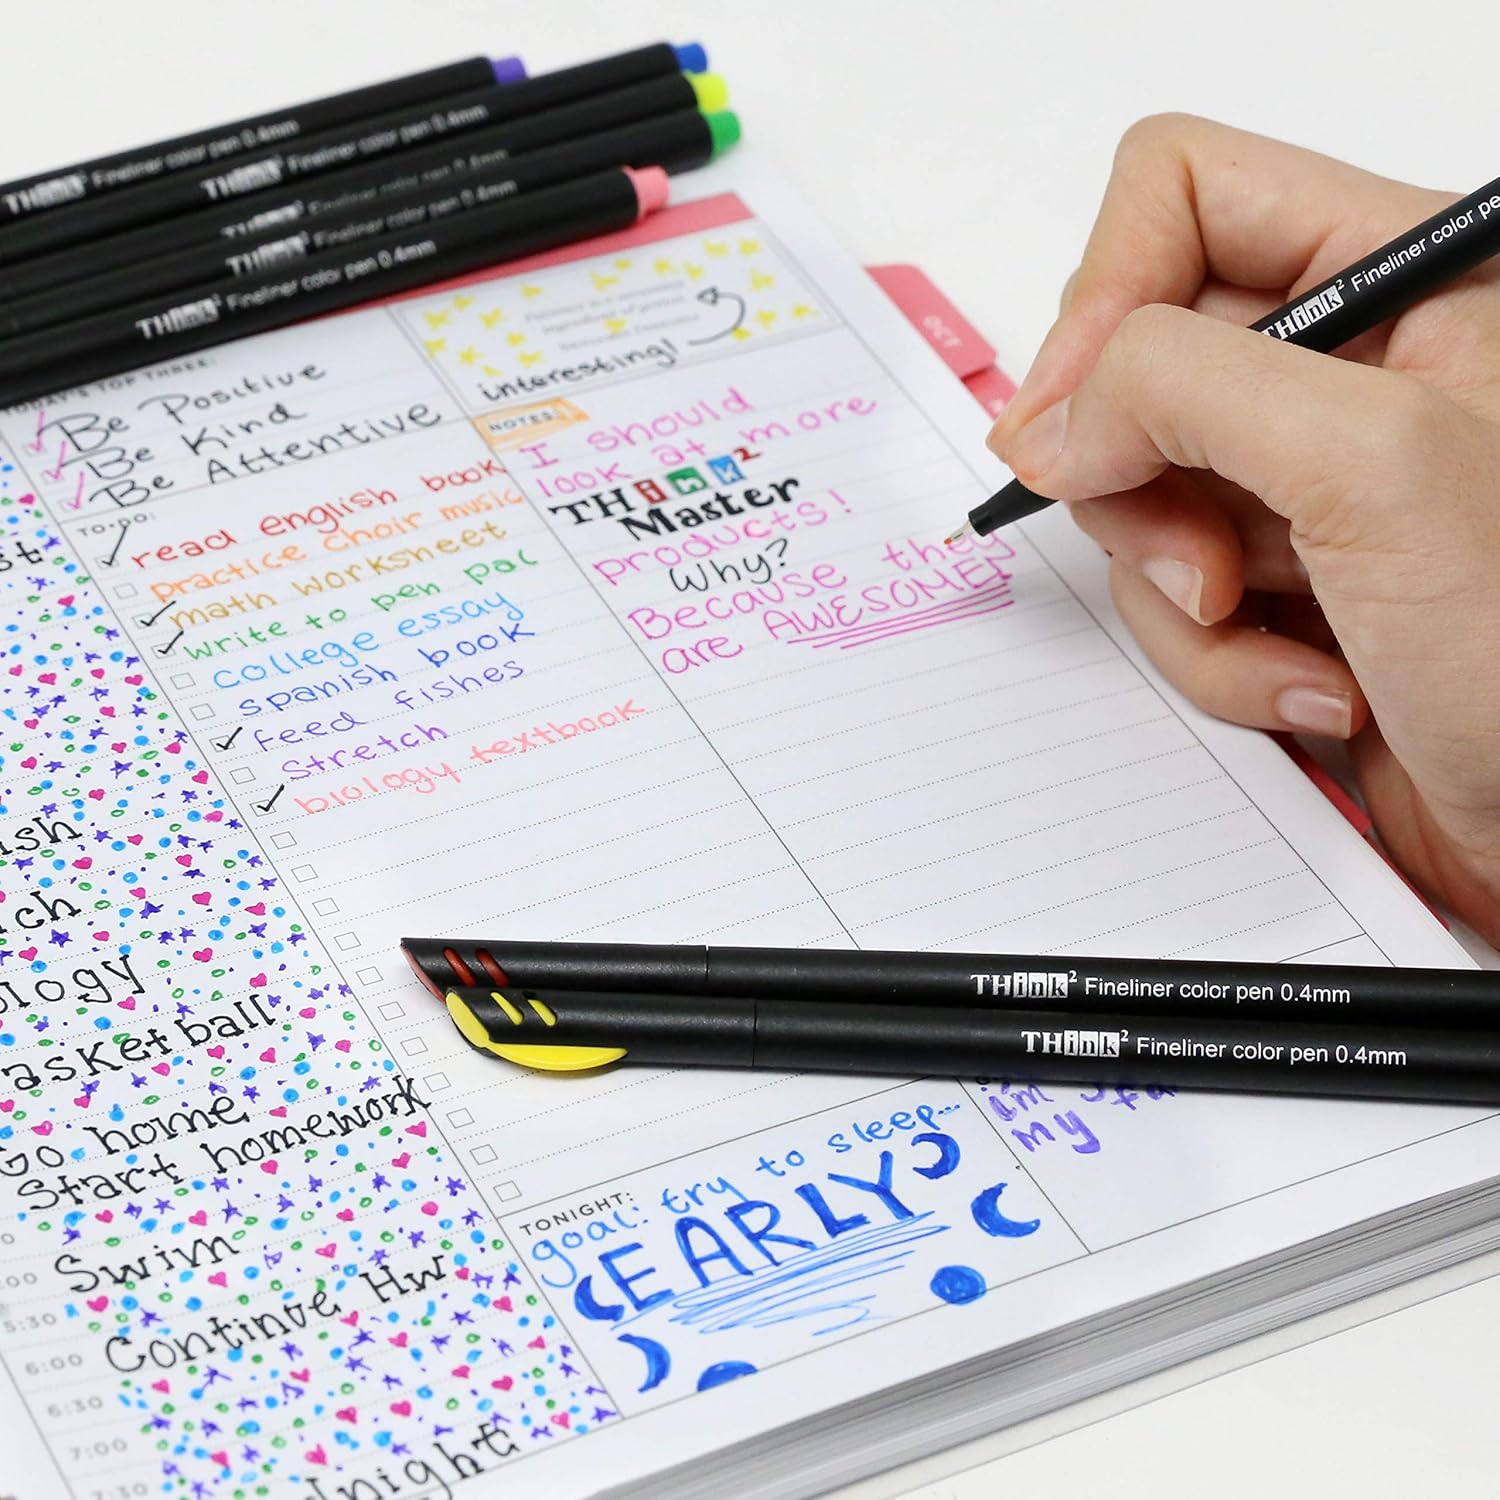 THink² Fineliner color pen 0.4mm
THink² Fineliner color pen 0.4mm
THink² Fineliner color pen 0.4mm
THink² Fineliner color pen 0.4mm
THink² Fineliner color pen 0.4mm
THink² Fineliner color pe
TODAY'S TOP THREE:
Be Positive
Be Kind
Be Attentive
interesting!
OCT
TO-DO:
read english book
practice choir music
math worksheet
write to pen pal
college essay
spanish book
feed fishes
stretch
biology textbook
NOTES:
I should
look at more
THink²
Master
products!
Why?
Because they
are AWESOME!
THink² Fineliner color pen 0.4mm
THink² Fineliner color pen 0.4mm
st
ish
ch
ology
asketball
Go home
Start homework
Swim
5:30
Continue Hw
6:00
6:30
7:00
7:30
dnight
TONIGHT:
goal: try to sleep...
EARLY
im
my fa